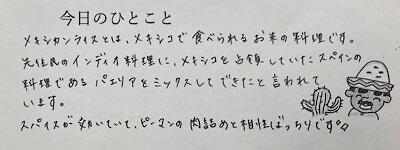 今日のひとこと
メキシカンライスとは、メキシコで食べられるお米の料理です。
先住民のインディオ料理に、メキシコを占領していたスペインの
料理であるパエリアをミックスしてできたと言われて
います。
スパイスが効いていて、ピーマンの肉詰めと相性ばっちりです。